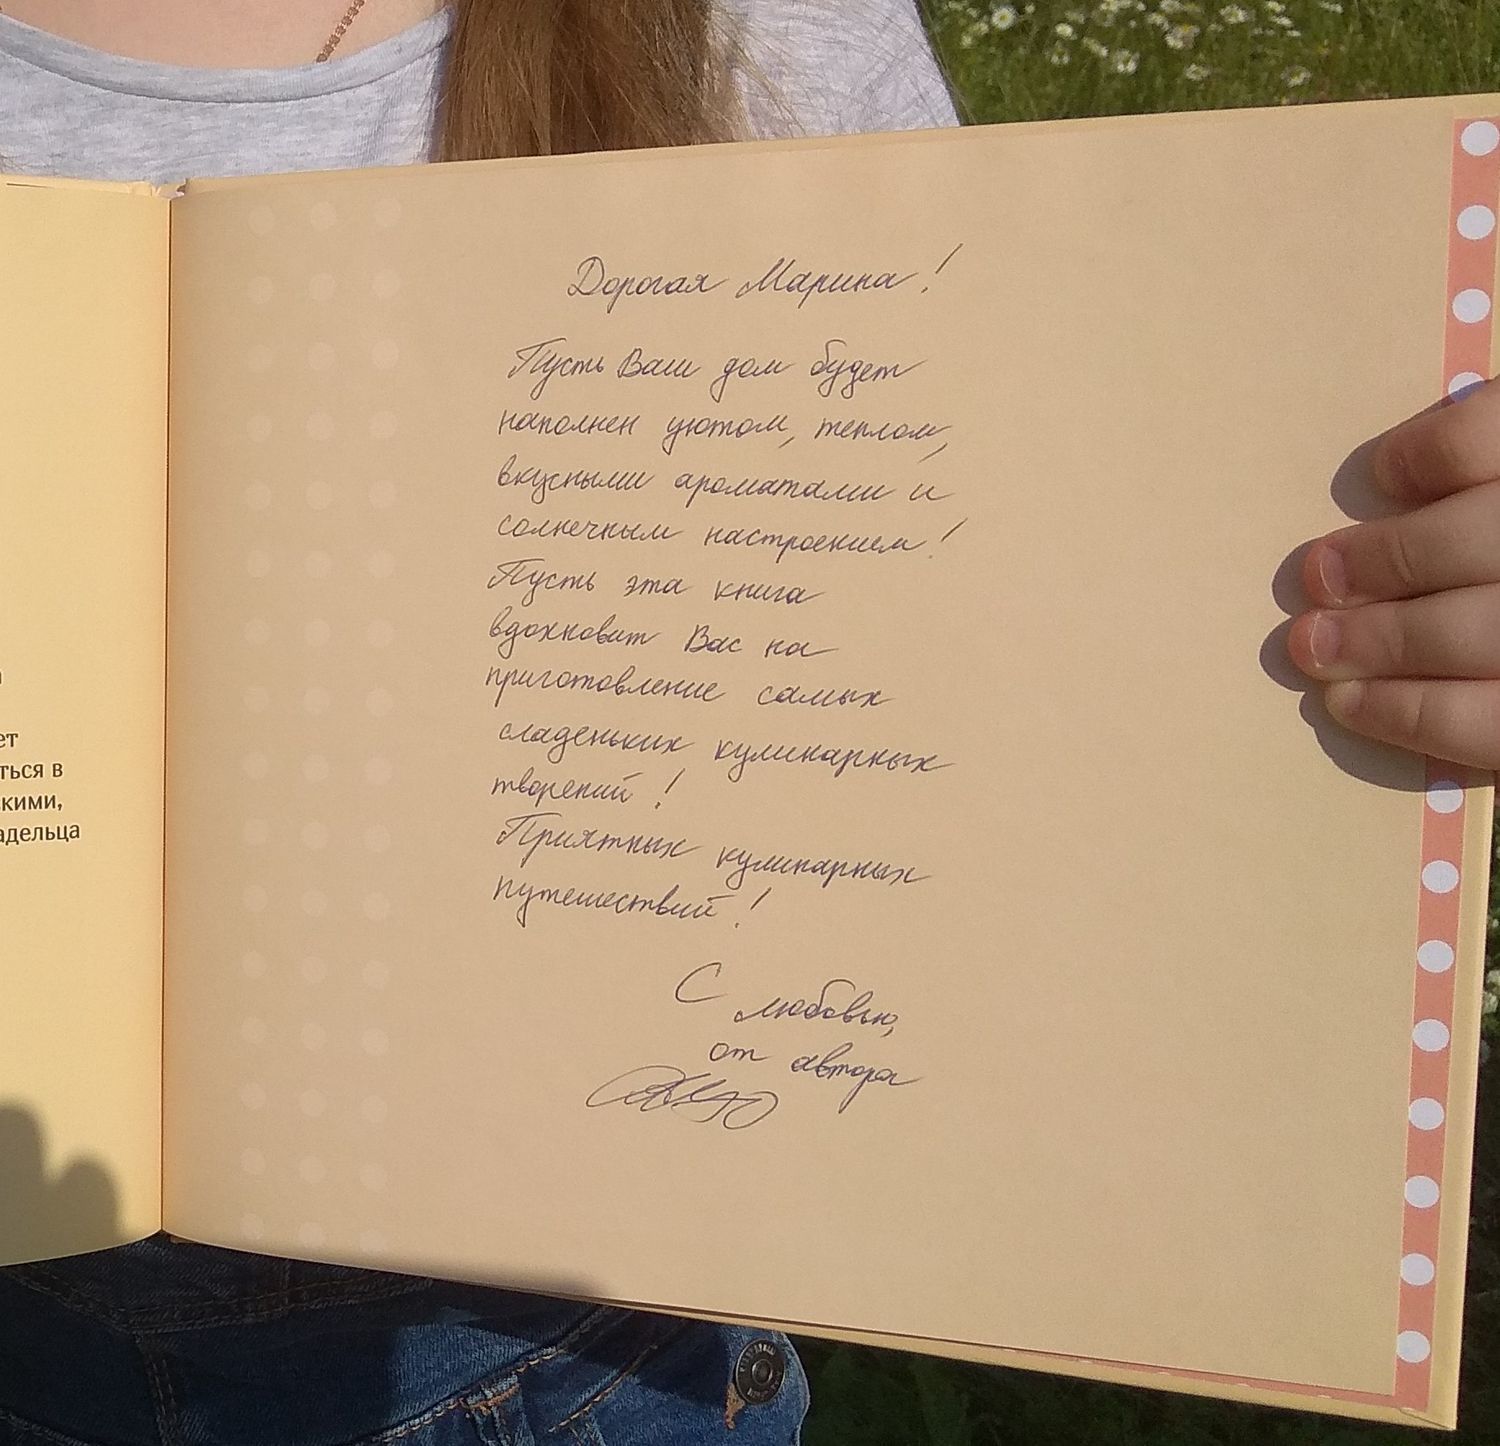 ет
ться в
кими,
адельца
Дорогая Марина!
Пусть Ваш дом будет
наполнен уютом, теплом,
вкусными ароматами и
солнечным настроением!
Пусть эта книга
вдохновит Вас на
приготовление самых
сладеньких кулинарных
творений!
Приятных кулинарных
путешествий!
С любовью,
от автора